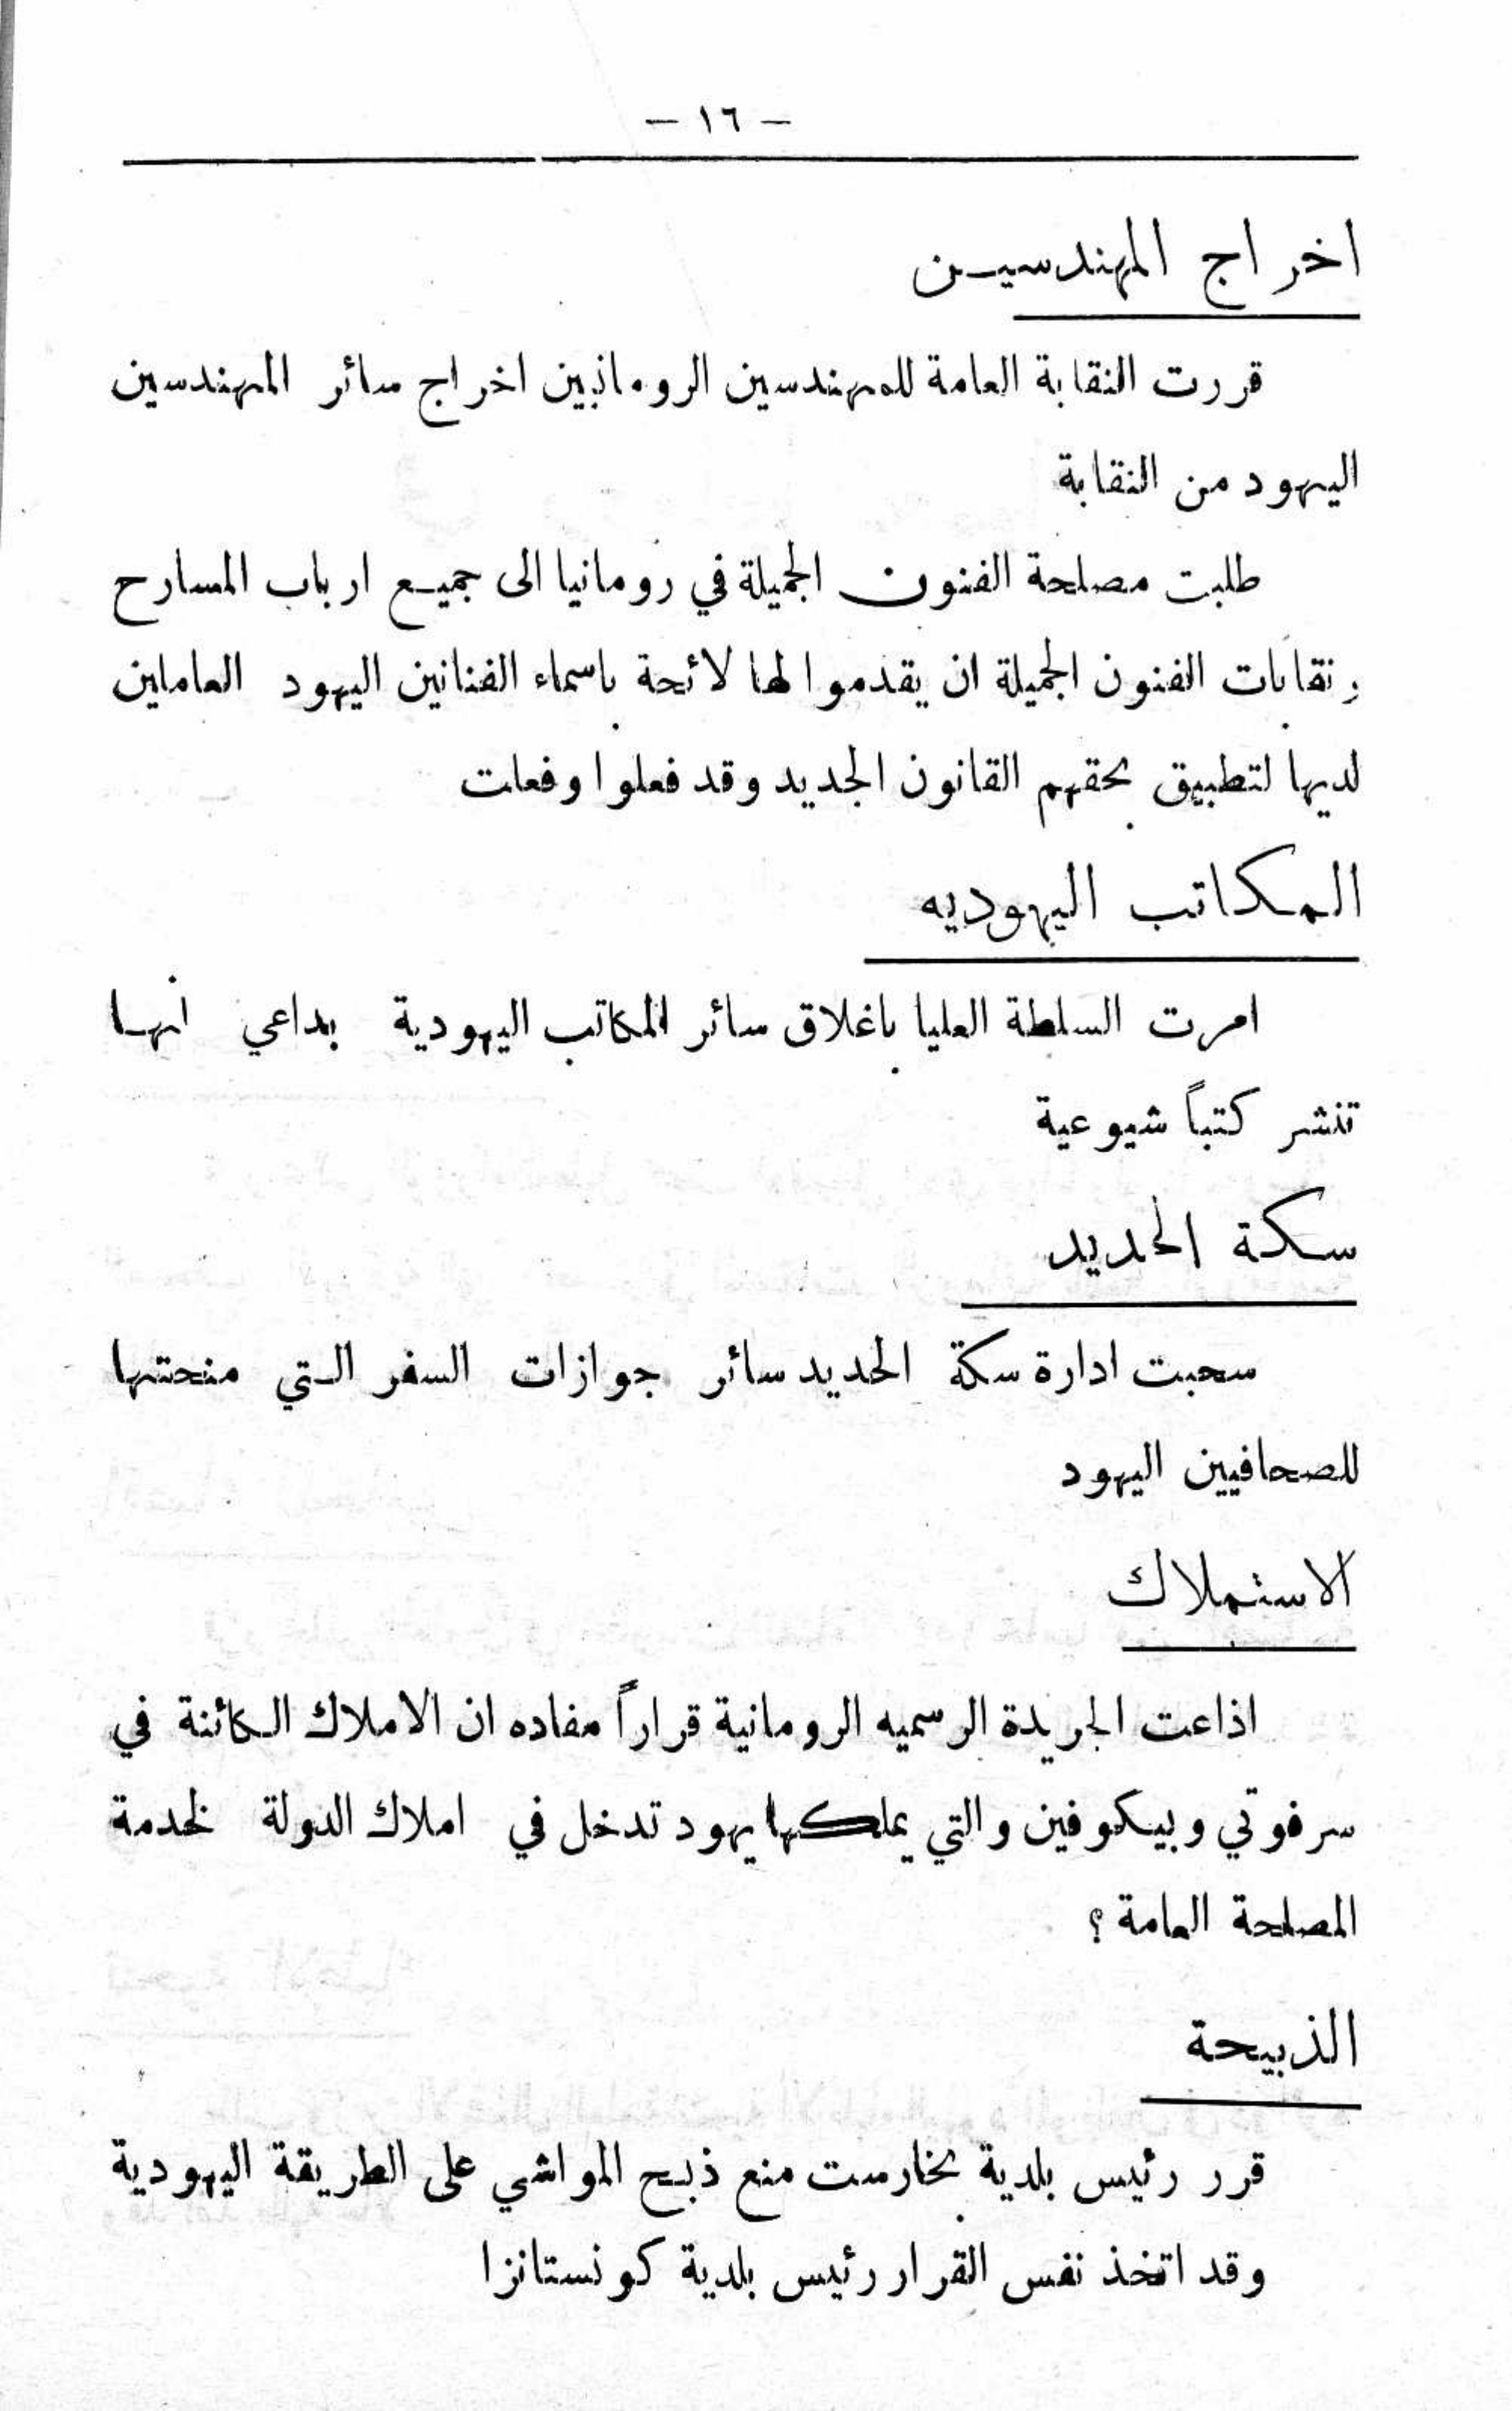 – ١٦ –
اخراج المهندسين
قررت النقابة العامة للمهندسين الرومانيين اخراج سائر المهندسين
اليهود من النقابة
طلبت مصلحة الفنون الجميلة في رومانيا الى جميع ارباب المسارح
ونقابات الفنون الجميلة ان يقدموا لها لائحة باسماء الفنانين اليهود العاملين
لديها لتطبيق بحقهم القانون الجديد وقد فعلوا وفعلت
المكاتب اليهوديه
امرت السلطة العليا باغلاق سائر المكاتب اليهودية بداعي انها
تنشر كتباً شيوعية
سكة الحديد
سحبت ادارة سكة الحديد سائر جوازات السفر التي منحتها
للصحافيين اليهود
الاستملاك
اذاعت الجريدة الرسميه الرومانية قراراً مفاده ان الاملاك الكائنة في
سرفوتي وبيكوفين والتي يملكها يهود تدخل في املاك الدولة لخدمة
المصلحة العامة ؟
الذبيحة
قرر رئيس بلدية بخارست منع ذبح المواشي على الطريقة اليهودية
وقد اتخذ نفس القرار رئيس بلدية كونستانزا